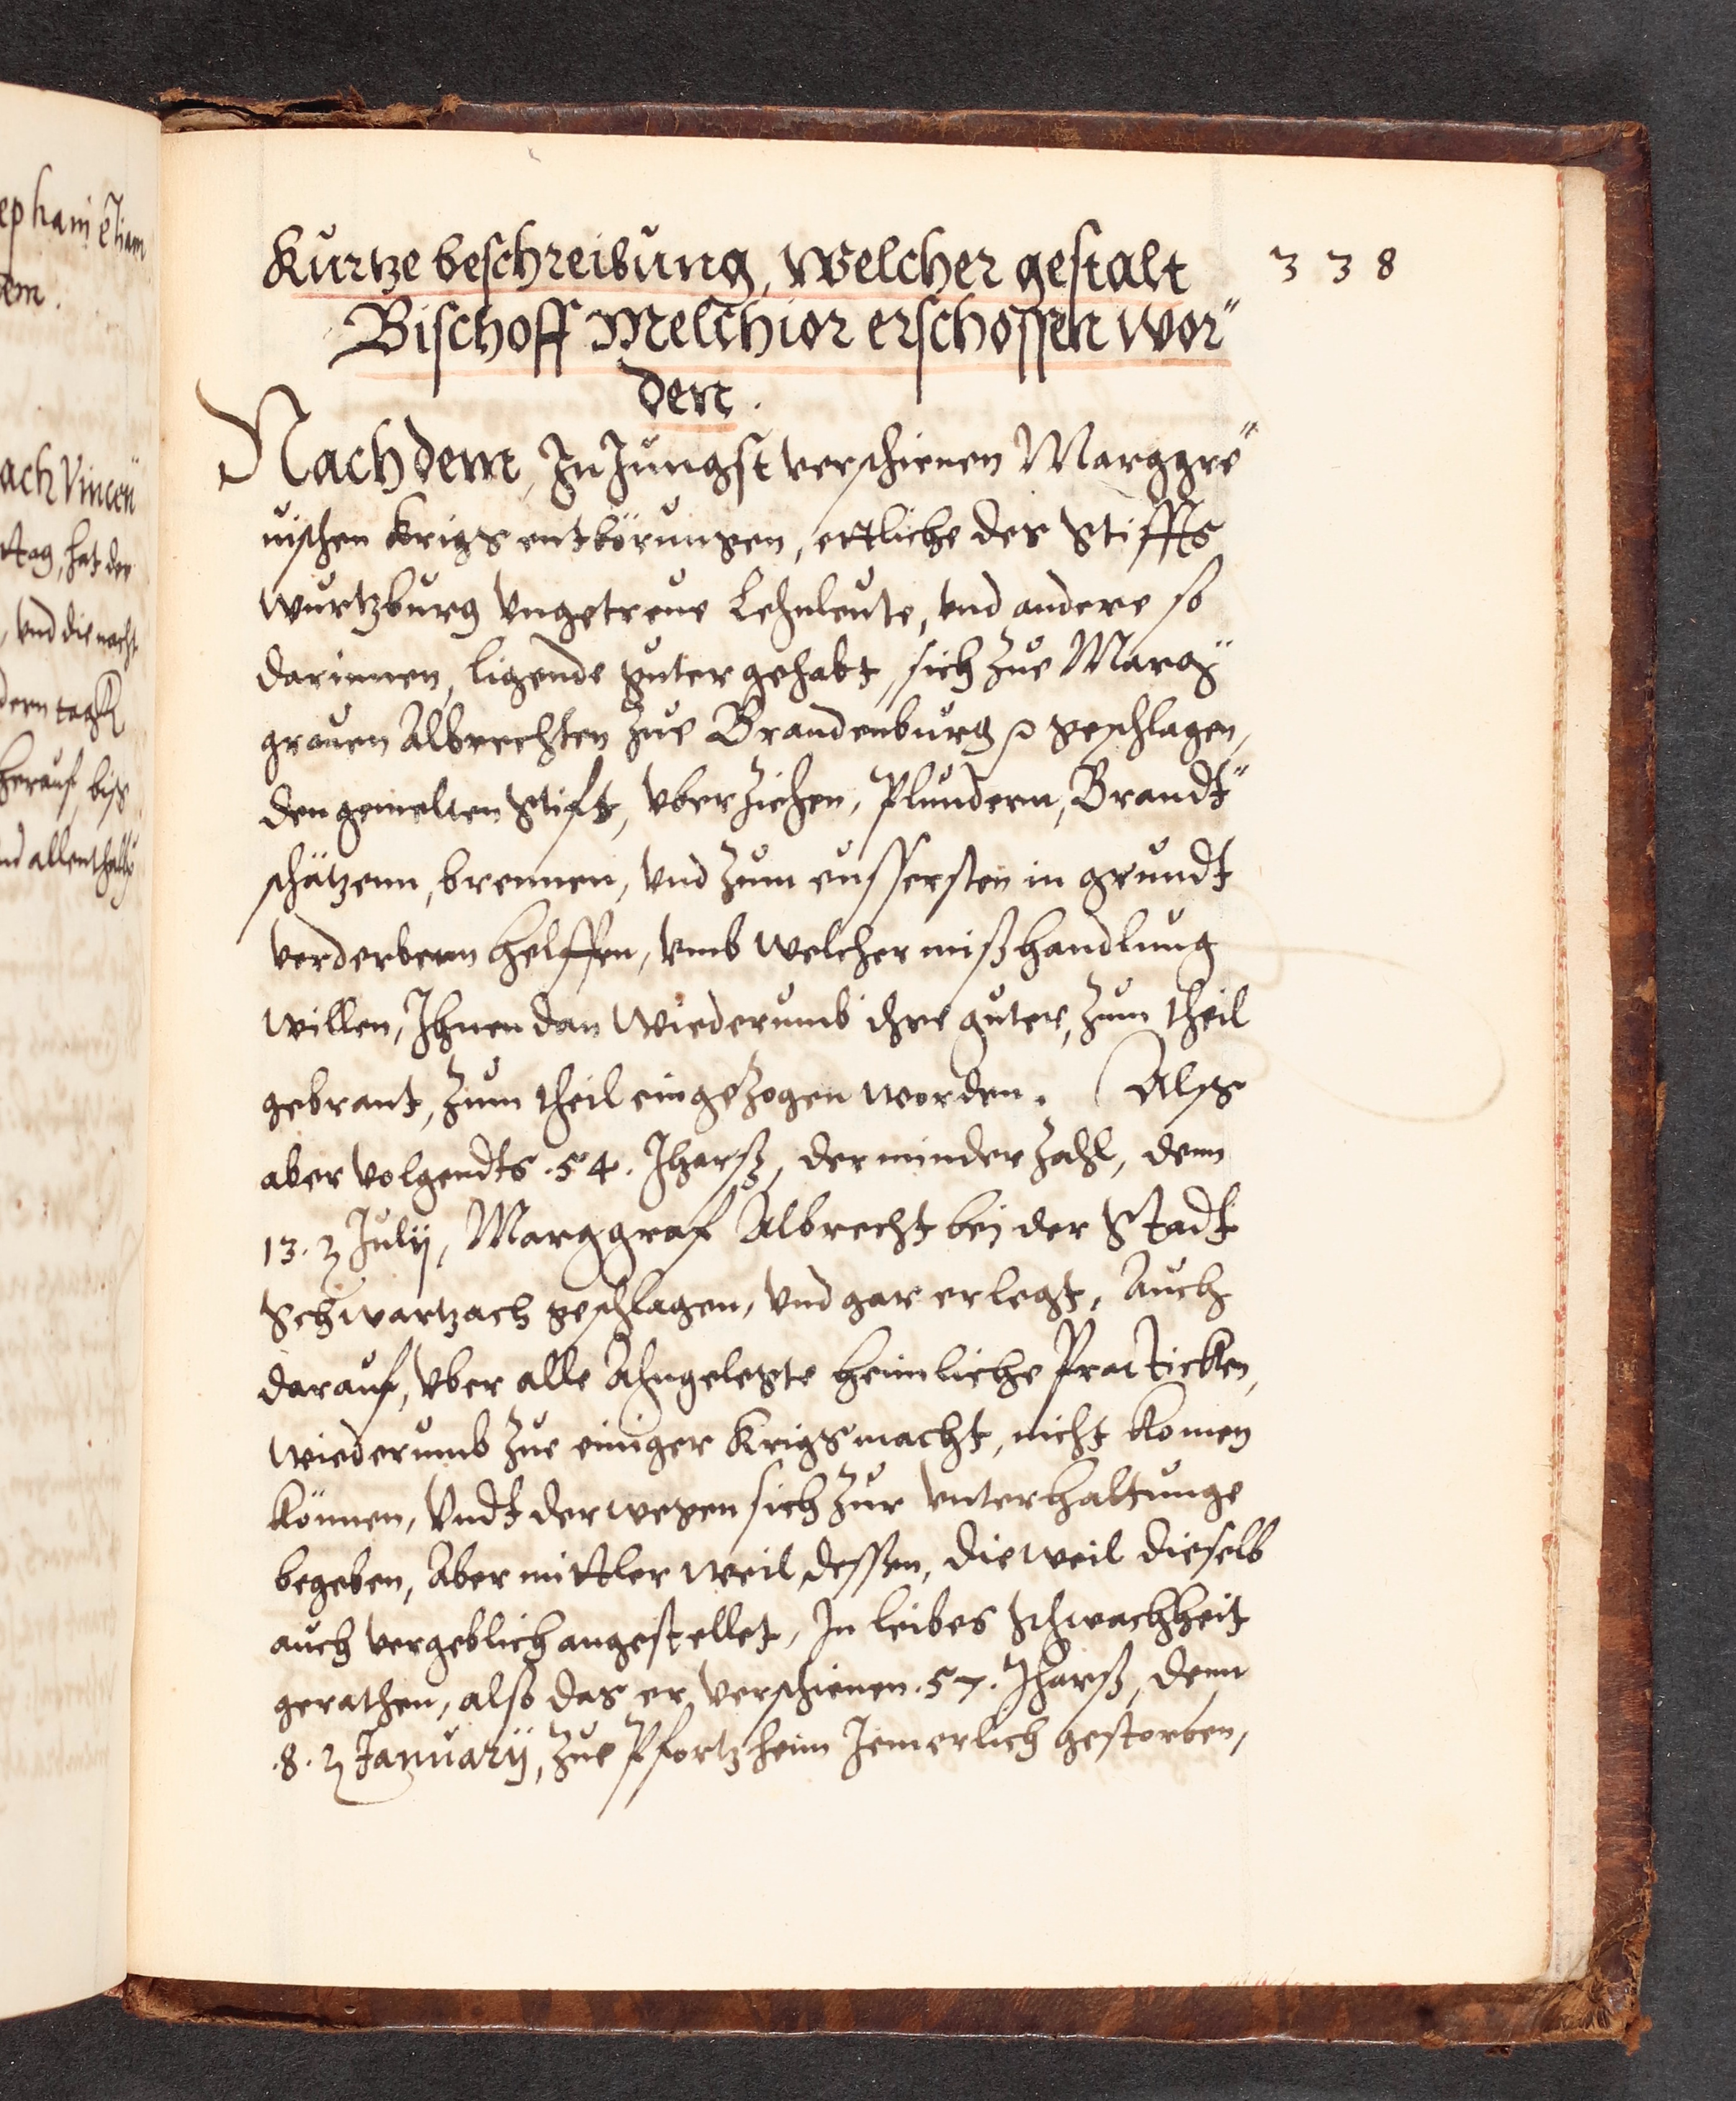 ephani etiam
dem.
ach Vincen
ttag, hat der
, vnd die nacht
dern tagk
herauf, biss
nd allenthalb
338
Kurtze beschreibung, Welcher gestalt
Bischoff Melchior erschossen wor"
den.
Nachdem, In Jungst verschienen Marggre"
uischen Krigs entbörungen, ettliche des Stiffts
Wurtzburg Vngetreue Lehnleute, vnd andere so
darinnen, ligende guter gehabt, sich zue Marg"
grauen Albrechten zue Brandenburg p geschlagen,
den gemelten Stift, vberziehen, Plundern, Brandt"
schätzenn, brennen, vnd zum eussersten in grundt
verderbenn helffen, vmb welcher mißhandlung
willen, Ihnen dan Wiederumb ihre guter, zum theil
gebrant, zum theil eingezogen worden. Alss
aber volgendts .54. Jharß, der minder Zahl, denn
13. Julij, Marggraf Albrecht bej der Stadt
Schwartzach geschlagen, vnd gar erlegt, Auch
darauf, vber alle Ahngelegte heimliche Practicken,
wiederumb zue einiger Krigsmacht, nicht komen
können, Vndt derwegen sich zur vnterhaltunge
begeben, Aber mittler weil dessen, dieweil dieselb
auch vergeblich angestellet, In leibes schwachheit
gerathen, also das er verschienen .57. Jharß, denn
.8. Januarij, zue Pfortzheim Jemerlich gestorben,